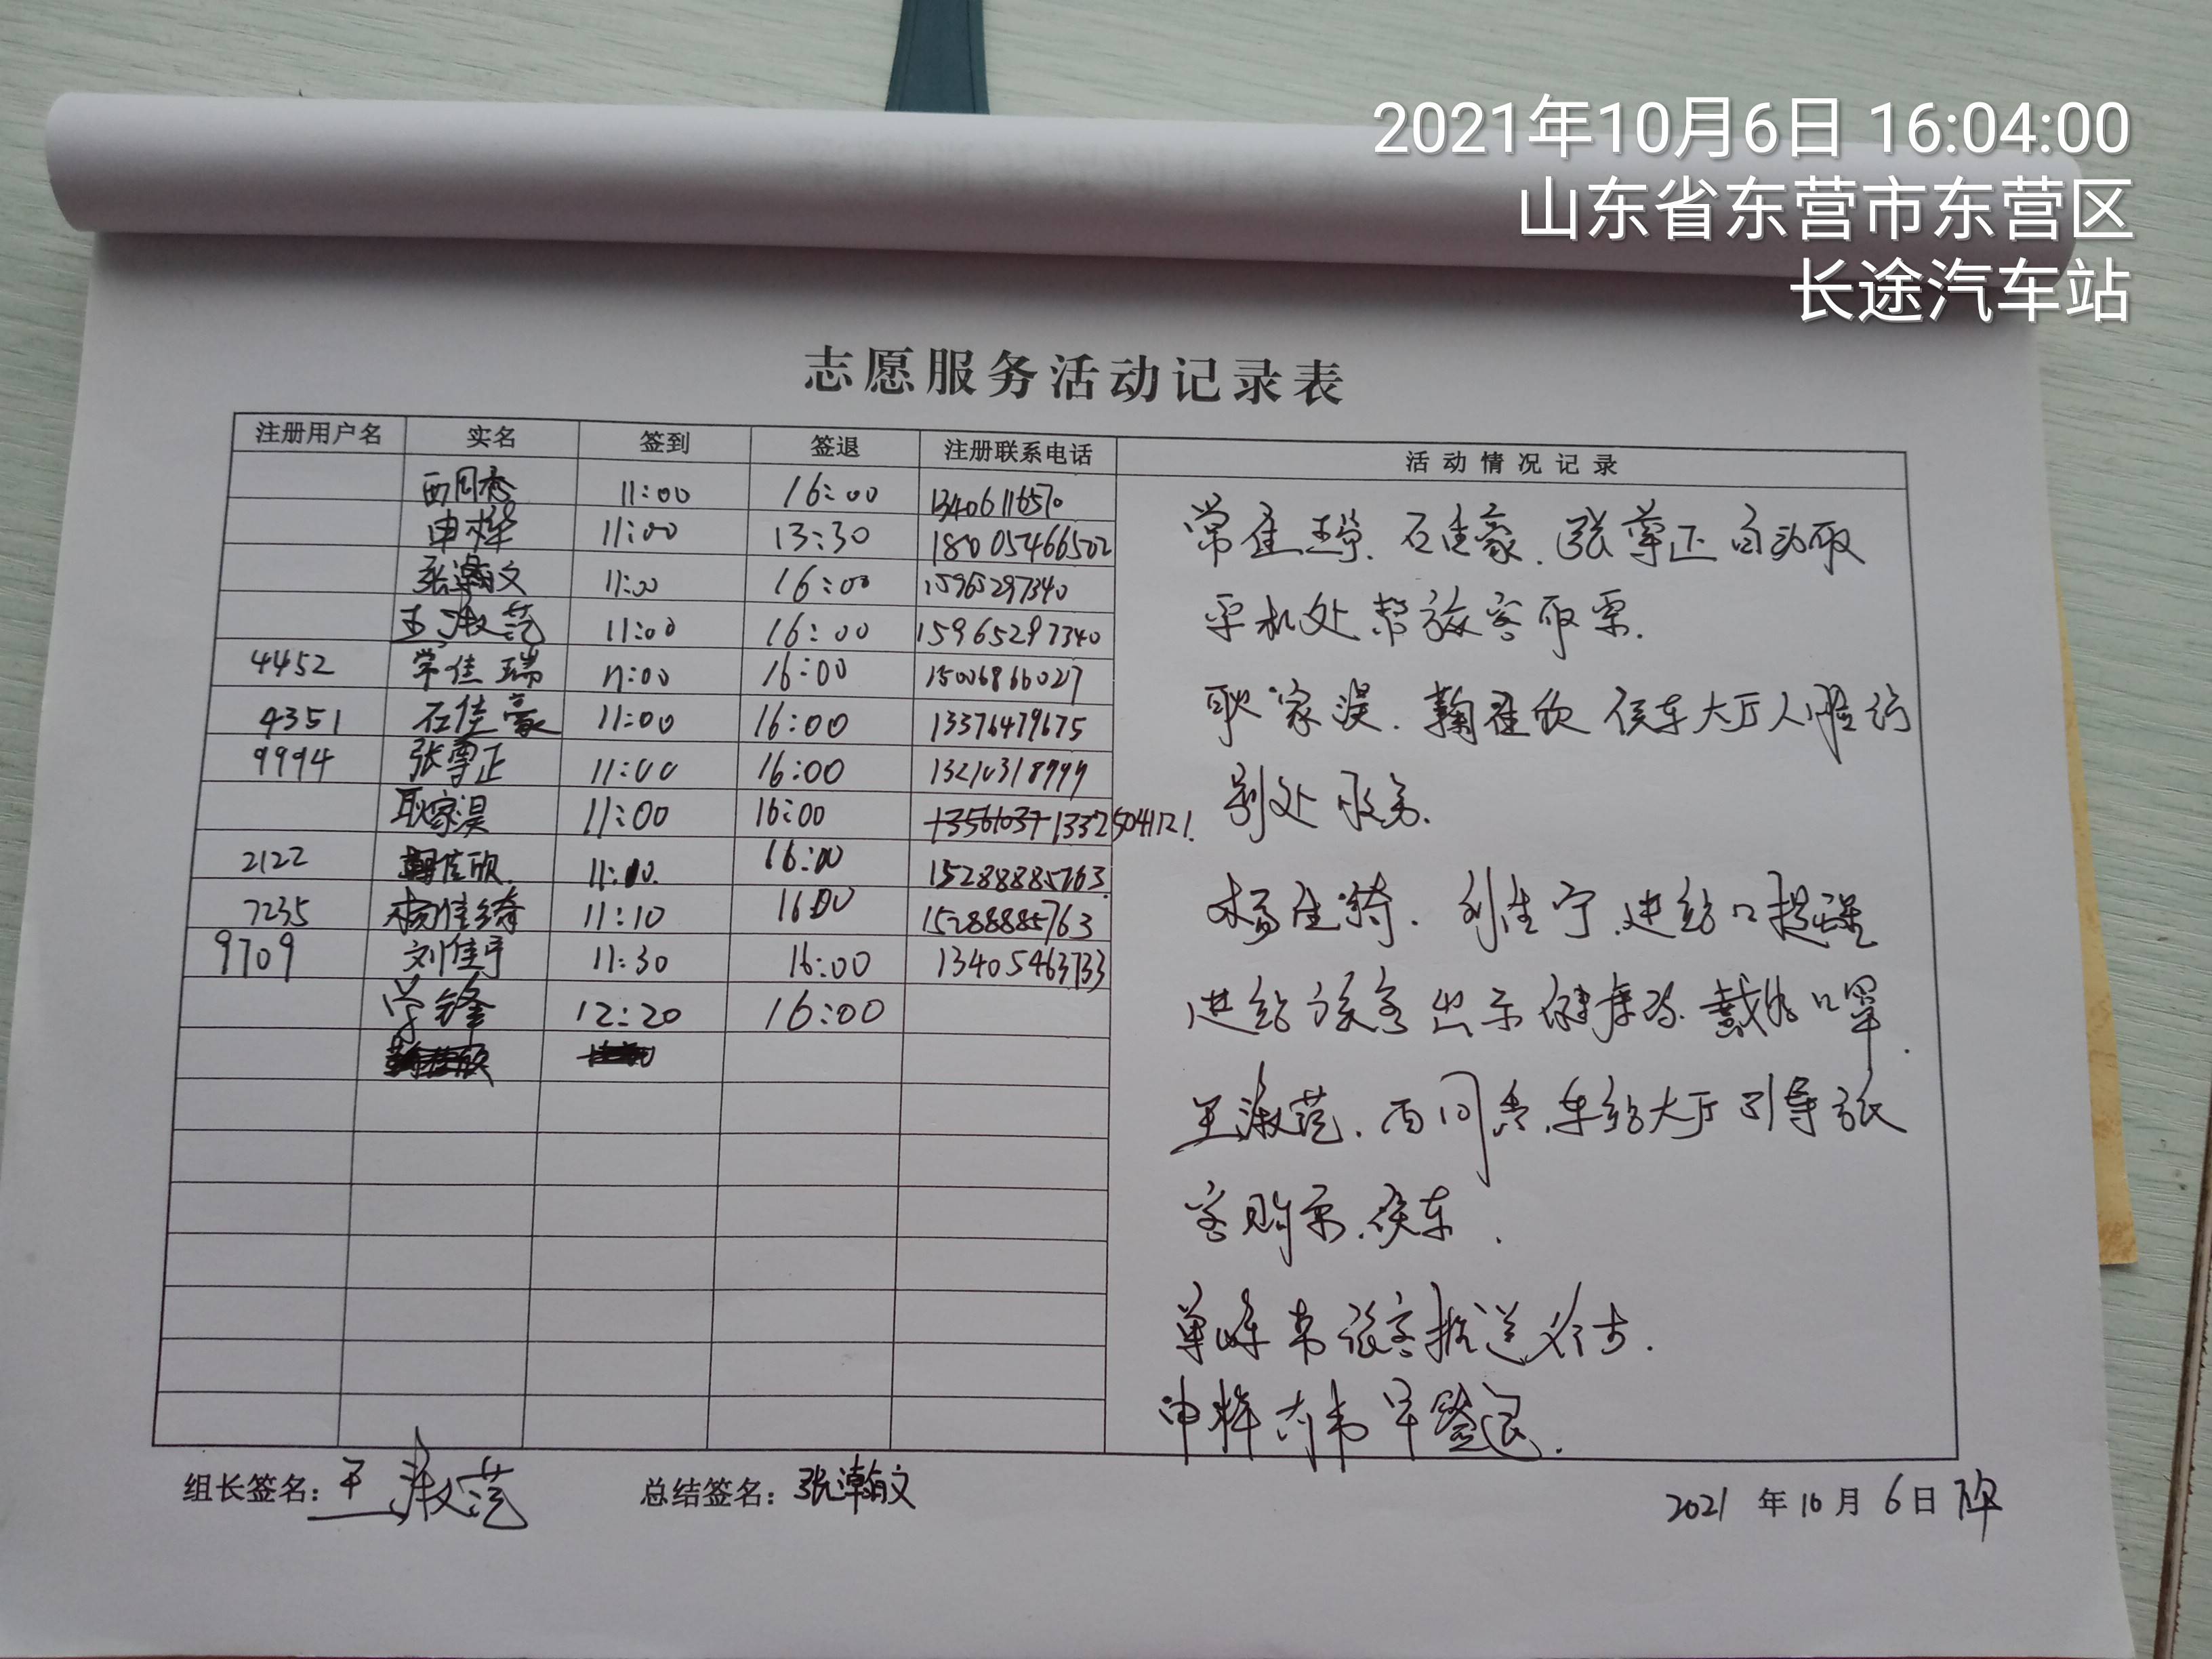 2021年10月6日 16:04:00
山东省东营市东营区
长途汽车站
志愿服务活动记录表
注册用户名 实名 签到 签退 注册联系电话 活动情况记录
11:00 16:00 13406116570
申桦 11:00 13:30 18005466502
张瀚文 11:00 16:00 15965297340
王淑范 11:00 16:00 15965297340
4452 常佳瑞 11:00 16:00 15006866027
4351 石佳豪 11:00 16:00 13376479675
9994 张尊正 11:00 16:00
耿家淏 11:00 16:00 13325041121
2122 鞠佳欣 16:00 15288885763
7235 杨佳绮 11:10 16:00 15288885763
9709 刘佳宁 11:30 16:00 13405463733
12:20 16:00
常佳 石佳豪.张尊正自动取
票机处帮旅客取票.
耿家淏.鞠佳欣 候车大厅人脸识
别处服务.
杨佳绮.刘佳宁.进站口提醒
进站旅客出示健康码.戴好口罩.
王淑范. 车站大厅引导旅
客购票.候车.
帮旅客推送行李.
申桦 早签退.
组长签名:王淑范 总结签名:张瀚文 2021年10月6日